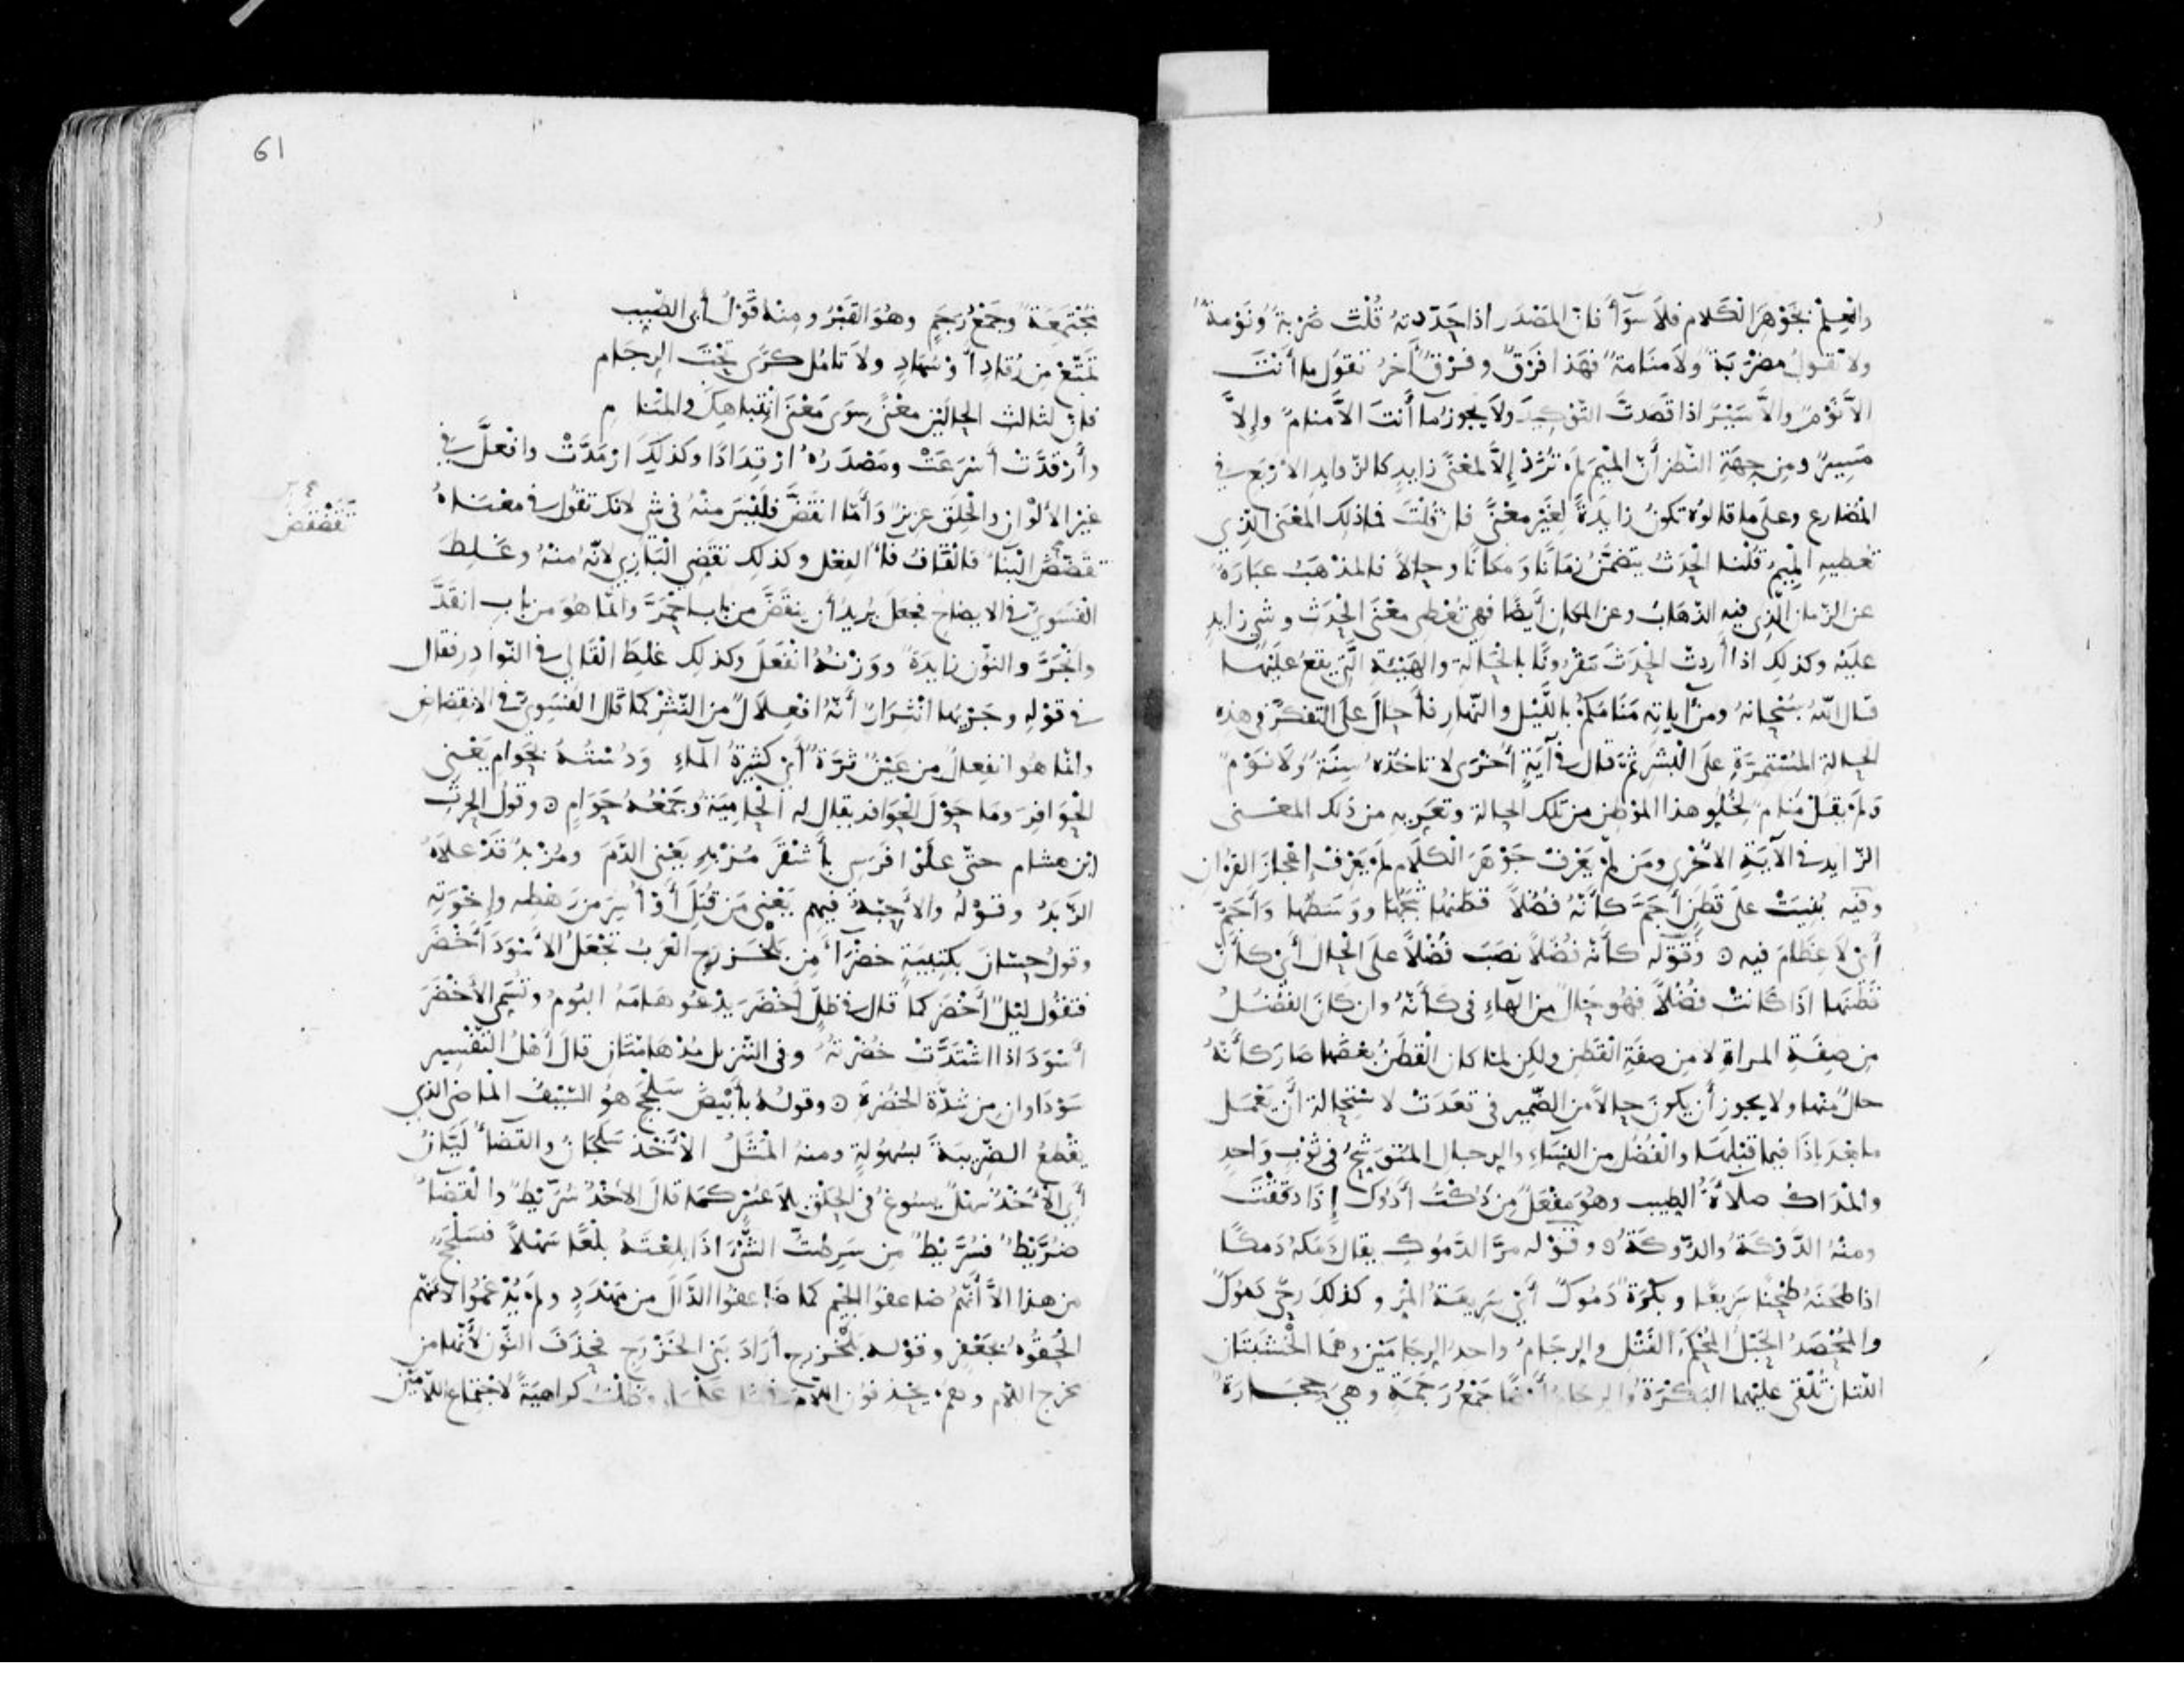 والعلم بجوهر الكلام فلا سوآء فان المصدر اذا حدّدته قُلْتَ ضَرْبَةٌ ونَوْمَةٌ
ولا تقول مَضْرَبَة ولا منامة فهذا فَرْقٌ وفَرْقٌ آخرُ تقول ما أنْتَ
الاّ نَوْمٌ والاّ سَيْرٌ اذا قَصَدتَ التوكيدَ ولا يجوز ما أنتَ الاّ منامٌ وإلاّ
مَسِيرٌ ومن جِهَةِ النّظر أنّ الميمَ لم تُزَدْ إلاّ لمعْنًى زايدٍ كالزّوايد الاربَع في
المُضارع وعلى ما قالوه تكونُ زايدةً لِغَيْر معْنًى فان قُلْتَ فما ذلك المعْنَى الذي
تُعطيهِ الميمُ قُلْنا الحَدَثُ يتضمَّنُ زمَانًا ومَكانًا وحالاً فالمذْهَبُ عبارةٌ
عن الزّمان الذي فيه الذّهابُ وعن المكان أيْضًا فهي تُعْطي مَعْنَى الحَدَث وشي زايد
عَلَيْه وكذلك اذا أردت الحَدَثَ مَقْرُونًا بالحالَةِ والهَيْئةِ الّتي يقعُ علَيْها
قال الله سُبْحانهُ ومن آياتِهِ مَنَامُكُمْ باللّيْل والنّهار فأحالَ على التفكّر في هذه
الحالة المُسْتَمِرَّةِ على البَشَر ثُمّ قال في آيةٍ أخْرى لا تاخُذُه سِنَةٌ ولا نَوْمٌ
ولم يقُلْ منام لخُلُو هذا الموْطِن من تلك الحالة وتعَرّيهِ من ذلك المعْنى
الزّايد في الآية الأخْرى ومَن لمْ يَعْرفْ جَوْهَرَ الكلام لم يَعْرِفْ إعْجازَ القرءان
وفيه بُنِيَتْ على قَطَنٍ أجَمَّ كأنّهُ فُضُلاً قَطَنُها ثَبَجُها ووَسَطُها وأجَمّ
أيْ لا عِظامَ فيه وقوْله كأنّه فُضُلاً نصَبَ فُضُلاً على الحال أي كأنّ
قَطَنَها اذا كانت فُضُلاً فهُو حالٌ من الهاءِ في كأنّهُ وان كانَ الفُضُلُ
مِن صِفَةِ المراةِ لا من صِفَةِ القَطَنِ ولكن لمّا كان القَطَنُ بعْضَها صارَ كأنّهُ
حالٌ منها ولا يجوز أن يكونَ حالاً من الضّمير في قعَدَتْ لاستحالة أن يَعْمَل
ما بعْدَ إذَا فيما قَبْلَها والفُضُل من النِّسَاءِ والرجال المُتوَشّحُ في ثوْبٍ واحدٍ
والمَداكُ صلآءةُ الطيب وهُو مَفْعَلٌ مِن دُكْتُ أدُوك إذا دَقَقْتَ
ومنْهُ الدَّوْكَةُ والدُّوكَةُ وقوْله مرّ الدّمُوكِ يقال دَمَكَهُ دَمكًا
اذا طَحَنَهُ طَحْنًا سَرِيعًا وبَكْرَةٌ دَمُوكٌ أيْ سَرِيعَةُ المَرّ وكذلكَ رحًى دَمُوكٌ
والمُحْصَدُ الحَبْلُ المُحْكَمُ الفَتْل والرجَامُ واحدُ الرجامَيْن وهُما الخَشَبَتَانِ
اللتان تُلْقى عليْهما البَكْرَةُ والرجام أيضًا جَمْعُ رَجَمَةٍ وهي حِجَارَةٌ
61
مُجْتَمِعَةٌ وجَمْعُ رَجَمٍ وهُوَ القَبْرُ ومنْهُ قَوْلُ أبي الطّيب
تَمتّعْ من رُقادٍ أوْ سُهادٍ ولا تامُل كَرًى تحْتَ الرجَام
فانّ لثالث الحالَيْن معْنًى سِوَى مَعْنَى انْتِباهِكَ والمَنَام
وأرْقَدَّتْ أسْرَعَتْ ومَصْدَرُهُ ارْقِدَادًا وكذلكَ ارْمَدَّتْ وافْعَلَّ في
غَيْر الألوْان والخِلَق عزيزٌ وأمّا انقَضَّ فَليْسَ منْهُ في شي لانك تقُولُ في معْناهُ
تَقَضّضَ البِنَآءُ فالقَافُ فآءُ الفِعْل وكذلك تقَضّى البَازِي لانّهُ منْهُ وغَلِطَ
تَقَضّضَ
الفَسَويّ في الايضاح فجَعَلَ يُريدُ أن ينقَضَّ من باب احْمَرَّ وانّما هُوَ من بابِ انقَدَّ
وانْجَرَّ والنّوُن زايدَةٌ ووَزْنُهُ انْفَعَلَ وكذلك غَلِطَ القَالِي في النّوادِر فقال
في قوْلِهِ وجَرْيُها انْثِرَارٌ أنّهُ افعِلاَلٌ من النّثْر كما قَالَ الفَسَويّ في الانقِضاضِ
وانّما هُو انفِعالٌ من عَيْنٌ ثَرّةٌ أيْ كثيرةُ المآءِ ودُسْتُهُ بحَوامٍ يَعْني
الحَوافِرَ ومَا حَوْلَ الحَوافِر يقال له الحامِيَةُ وجَمْعُهُ حَوَامٍ وقولُ الحرثِ
ابن هشام حتّى علَوْا فَرَسي بأشْقَرَ مُزْبِدٍ يَعْني الدّمَ ومُزْبِدٌ قَدْ علاهُ
الزّبَدُ وقوْلهُ والأحِبّةُ فيهم يَعْني مَن قُتِلَ أوْ أُسِرَ من رَهْطِه وإخْوَتِهِ
وقولُ حسّانَ بكتيبَةٍ خضْرَآءَ مِن بَلْخَزْرَجِ العَرَبُ تجْعَلُ الأسْوَدَ أخْضَرَ
فتقُولُ ليْلٌ أخْضَرُ كما قال في ظِلّ أخْضَرَ يدْعُو هامَهُ البُومُ وتُسَمّي الأخْضَرَ
أسْوَدَ اذا اشْتَدَّتْ خُضْرتهُ وفي التّنزيل مُدْهامّتَانِ قالَ أهْلُ التّفسِير
سَوْدَاوان مِن شدّة الخُضْرةِ وقولهُ بأبْيَضَ سَلْجَجٍ هُو السّيْفُ الماضي الذي
يقْطعُ الضّرِيبَةَ بسُهُولةٍ ومنهُ المَثَلُ الأخْذُ سَلَجَانٌ والقضآءُ لَيّانٌ
أي الأخْذُ سَهْلٌ يسُوغُ في الحَلْق بلا عُسْر كما قالَ الأخْذُ سُرَّيْطٌ والقَضَآءُ
ضُرَّيْطٌ فسُرَّيْطٌ من سَرِطْتُ الشّيْءَ اذا بلِعْتَهُ بَلْعًا سَهْلاً فسَلْجَجٌ
من هذا الاّ أنّهُمْ ضاعفُوا الجيْم كما ضاعفُوا الدّالَ من مَهْدَدٍ ولم يُدْغمُوا لانّهُم
ألحَقُوهُ بجَعْفرٍ وقوْلهُ بَلْخَزرج أرَادَ بَنِي الخَزْرَجِ فحَذَفَ النّونَ لأنّها من
مخرج اللام وهُمْ يحذفون اللامَ في مثل علمَاءِ وظلت كراهيَةً لاجتماعِ اللاّمَيْن